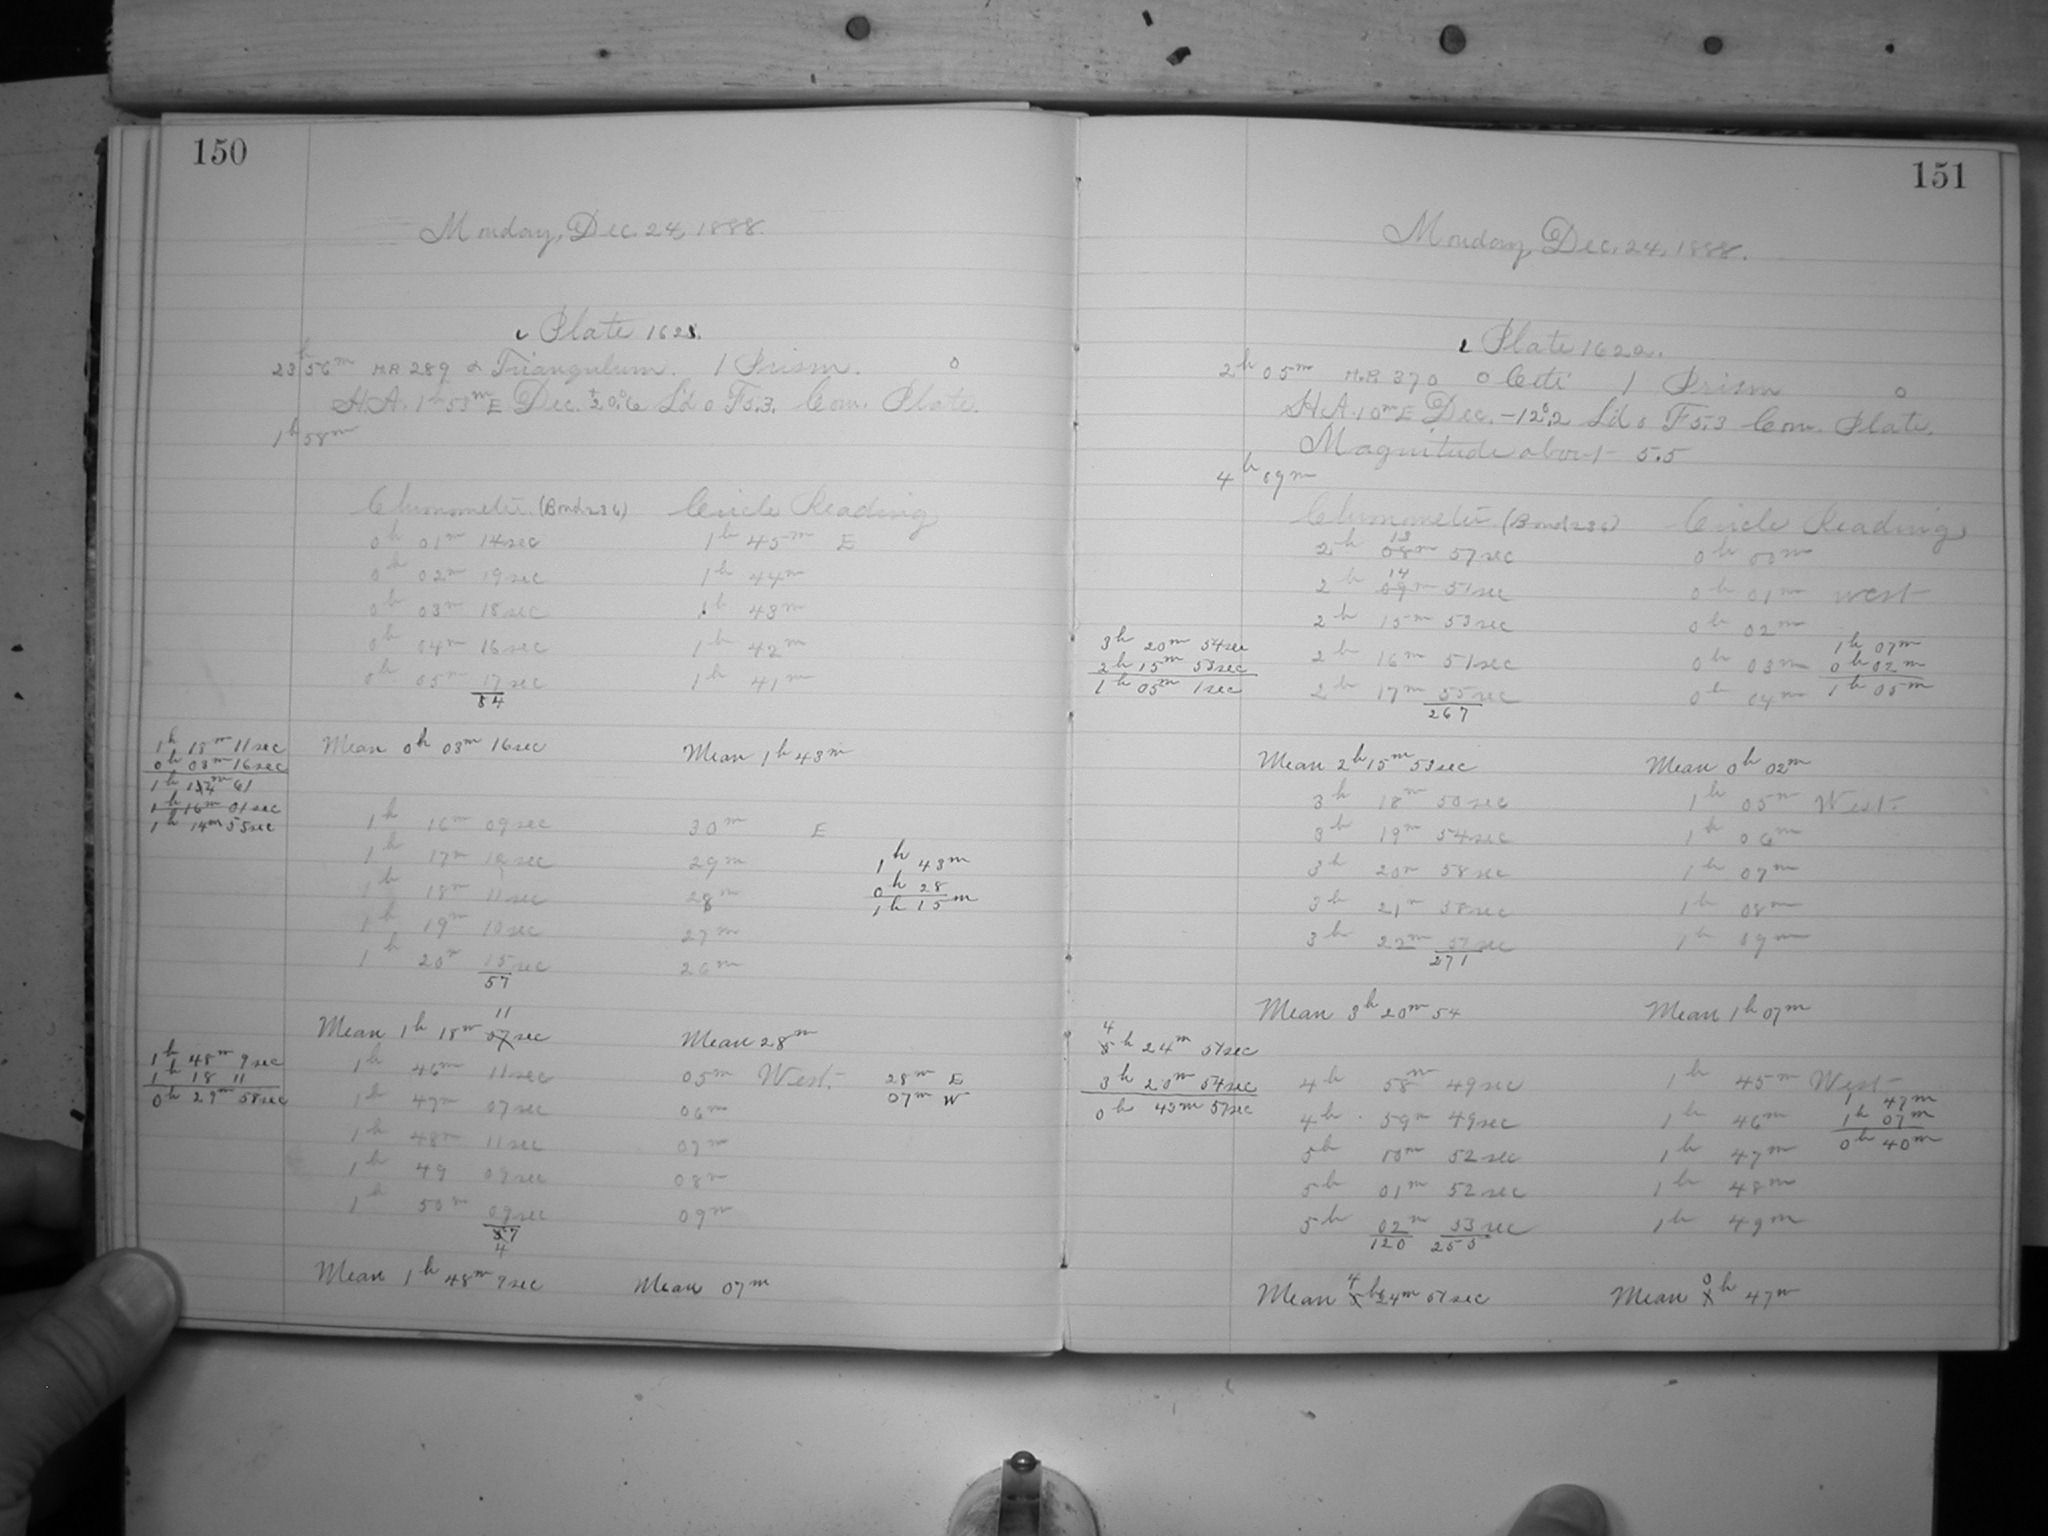 150
Monday, Dec. 24, 1888.
Plate 162
23h 56m HR 289 α Triangulum. 1 Prism. 0
H.A. 1h 53m E Dec. +20.°6 L'd o F5.3. Com. Plate.
1h 58m
Chronometer (Bond 236) Circle Reading
0h 01m 14sec 1h 45m E
0h 02m 19sec 1h 44m
0h 03m 18sec 1h 43m
0h 04m 16sec 1h 42m
0h 05m 17sec 1h 41m
84
1h 18m 11sec Mean 0h 03m 16sec Mean 1h 43m
0h 03m 16sec
1h 61
1h 16m 01sec
1h 14m 55sec
1h 16m 09sec 30m E
1h 17m sec 29m
1h 18m 11sec 28m
1h 19m 10sec 27m
1h 20m 15sec 26m
57
1h 43m
0h 28
1h 15m
11
Mean 1h 18m 07sec Mean 28m
1h 48m 9sec
1h 18 11
0h 29m 58sec
1h 46m 11sec 05m West. 28m E
1h 47m 07sec 06m 07m W
1h 48m 11sec 07m
1h 49 09sec 08m
1h 50m 09sec 09m
7
4
Mean 1h 48m 9sec Mean 07m
151
Monday, Dec. 24, 1888.
Plate 1622.
2h 05m H.P. 370 o Ceti 1 Prism 0
H.A. 10m E Dec. -12.°2 L'd o F5.3 Com. Plate.
Magnitude about 5.5
4h 09m
Chronometer (Bond 236) Circle Reading
13
2h 08m 57sec 0h 00m
14
2h 09m 51sec 0h 01m west
2h 15m 53sec 0h 02m
2h 16m 51sec 0h 03m
2h 17m 55sec 0h 04m
267
3h 20m 54sec
2h 15m 53sec
1h 05m 1sec
1h 07m
0h 02m
1h 05m
Mean 2h 15m 53sec Mean 0h 02m
3h 18m 50sec 1h 05m West.
3h 19m 54sec 1h 06m
3h 20m 58sec 1h 07m
3h 21m 58sec 1h 08m
3h 22m 51sec 1h 09m
271
Mean 3h 20m 54 Mean 1h 07m
4
5h 24m 51sec
3h 20m 54sec
0h 43m 57sec
4h 58m 49sec 1h 45m West
4h 59m 49sec 1h 46m
5h 00m 52sec 1h 47m
5h 01m 52sec 1h 48m
5h 02m 53sec 1h 49m
120 255
1h 47m
1h 07m
0h 40m
4 0
Mean 5h 24m 51sec Mean 1h 47m